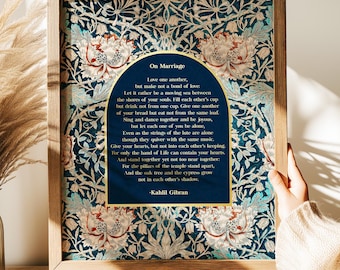 On Marriage
Love one another,
but make not a bond of love:
Let it rather be a moving sea between
the shores of your souls. Fill each other's cup
but drink not from one cup. Give one another
of your bread but eat not from the same loaf.
Sing and dance together and be joyous,
but let each one of you be alone,
Even as the strings of the lute are alone
though they quiver with the same music.
Give your hearts, but not into each other's keeping.
For only the hand of Life can contain your hearts.
And stand together yet not too near together:
For the pillars of the temple stand apart,
And the oak tree and the cypress grow
not in each other's shadow.
-Kahlil Gibran